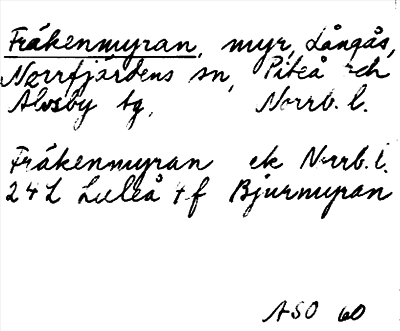 Fräkenmyran, myr, Långås,
Norrfjärdens sn, Piteå och
Älvsby tg, Norrb. l.
Fräkenmyran ek Norrb. l.
24L Luleå 4f Bjurmyran
ASO 60